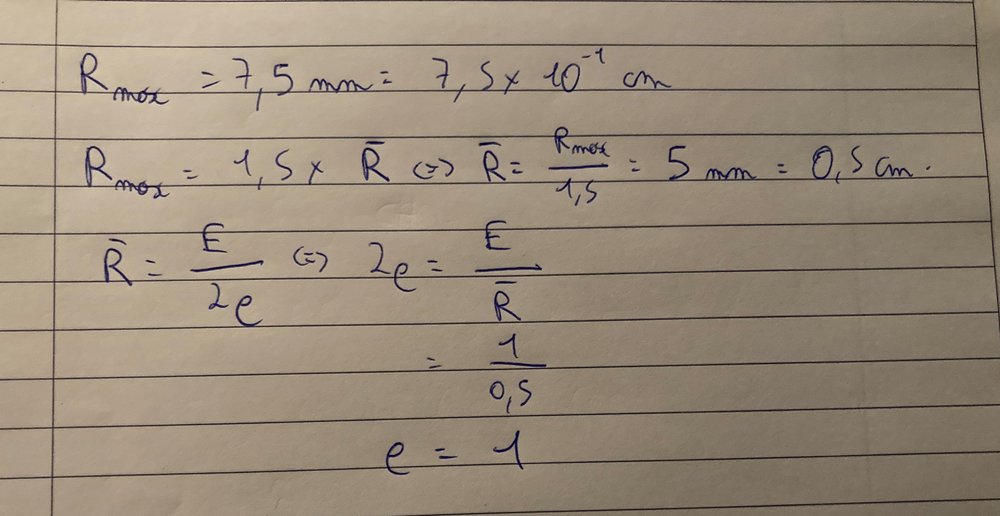 R_max = 7,5 mm = 7,5 × 10⁻¹ cm
R_max = 1,5 × R̄ ⇔ R̄ = R_max / 1,5 = 5 mm = 0,5 cm.
R̄ = E / 2ρ ⇔ 2ρ = E / R̄
= 1 / 0,5
ρ = 1